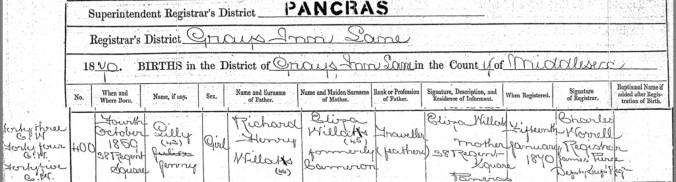 PANCRAS
Superintendent Registrar's District
Registrar's District Grays Inn Lane
1870. BIRTHS in the District of Grays Inn Lane in the County of Middlesex
No. When and Where Born. Name, if any. Sex. Name and Surname of Father. Name and Maiden Surname of Mother. Rank or Profession of Father. Signature, Description, and Residence of Informant. When Registered. Signature of Registrar. Baptismal Name if added after Registration of Birth.
forty three
forty four
forty five
400
Fourth
October
58 Regent
Square
Lilly
(43)
Jenny
Girl
Richard
Henry
Willatts
(44)
Eliza
Willatts
(45)
formerly
Cameron
Traveller
(feathers)
Eliza Willatts
mother
58 Regent
Square
Pancras
Fifteenth
January
1870
Charles
Worrell
Registrar
James